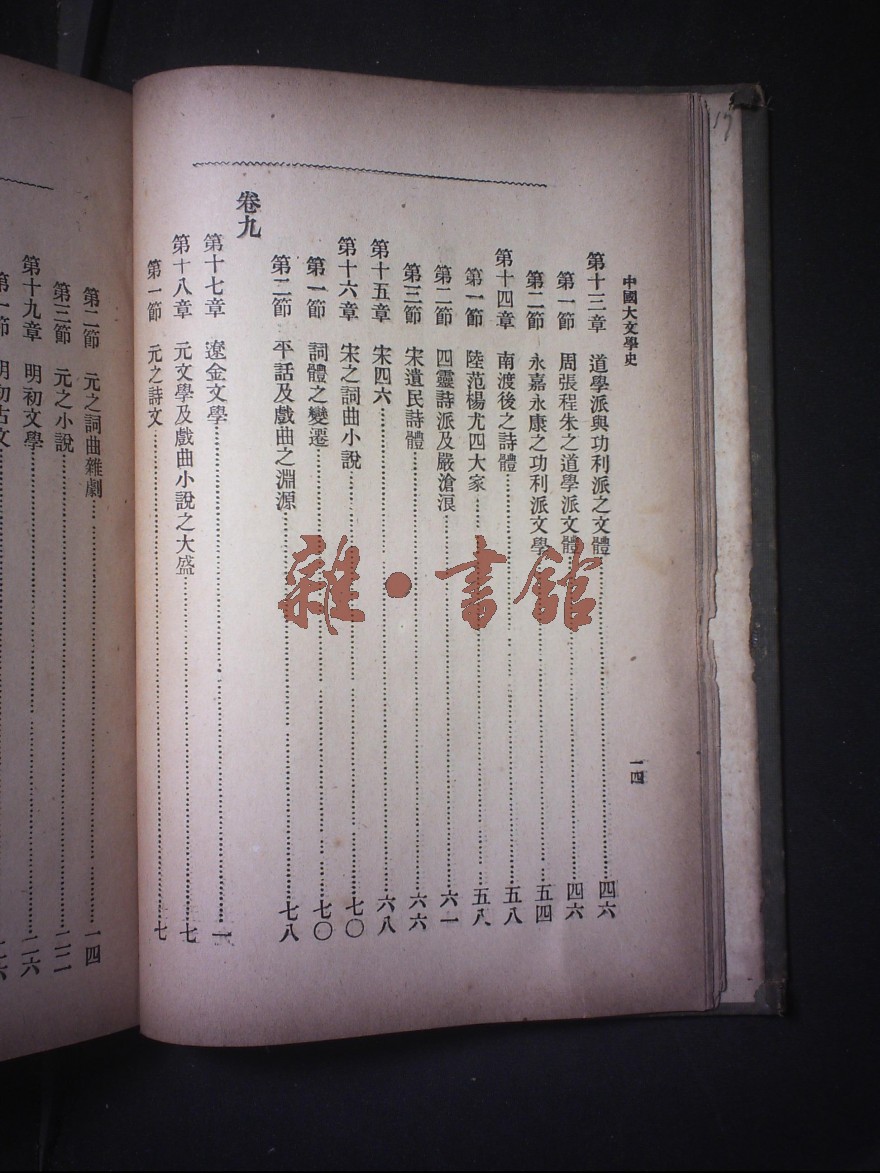 中國大文學史
一四
第十三章 道學派與功利派之文體 四六
第一節 周張程朱之道學派文體 四六
第二節 永嘉永康之功利派文學 五四
第十四章 南渡後之詩體 五八
第一節 陸范楊尤四大家 五八
第二節 四靈詩派及嚴滄浪 六一
第三節 宋遺民詩體 六六
第十五章 宋四六 六八
第十六章 宋之詞曲小說 七〇
第一節 詞體之變遷 七〇
第二節 平話及戲曲之淵源 七八
卷九
第十七章 遼金文學 一
第十八章 元文學及戲曲小說之大盛 七
第一節 元之詩文 七
第二節 元之詞曲雜劇 一四
第三節 元之小說 二二
第十九章 明初文學 二六
第一節 明初古文 二六
雜·書館